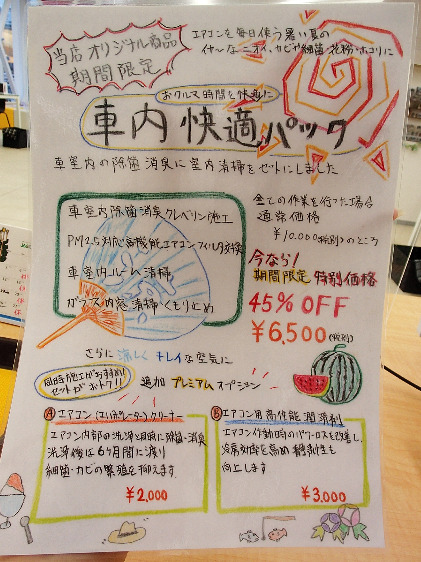 当店オリジナル商品
期間限定
エアコンを毎日使う暑い夏の
イヤ〜なニオイ、カビや細菌・花粉・ホコリに
おクルマ時間を快適に
車内快適パック
車室内の除菌消臭に室内清掃をセットにしました
車室内除菌消臭クレベリン施工
PM2.5対応高機能エアコンフィルタ交換
車室内ルーム清掃
ガラス内窓清掃・くもり止め
全ての作業を行った場合
通常価格
￥10,000(税別)のところ
今なら!
期間限定 特別価格
45%OFF
￥6,500(税別)
さらに涼しくキレイな空気に
同時施工がおすすめ!
セットがおトク!!
追加プレミアムオプション
Ⓐエアコン(エバポレーター)クリーナー
エアコン内部の洗浄と同時に除菌・消臭
洗浄後は6ヶ月間に渡り
細菌・カビの繁殖を抑えます
￥2,000
Ⓑエアコン用高性能潤滑剤
エアコン作動時のパワーロスを改善し、
冷房効率を高め静粛性も
向上します
￥3,000